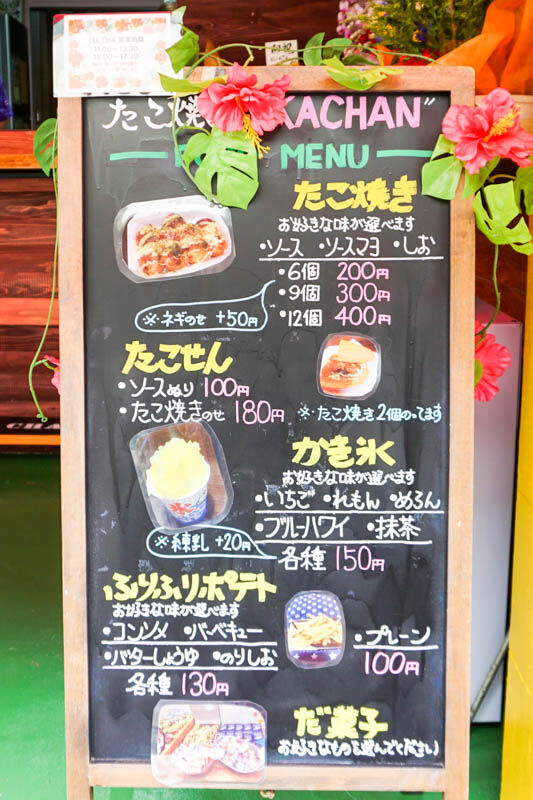 11:00〜13:30
15:00〜17:30
たこ焼 KACHAN"
MENU
たこ焼き
お好きな味が選べます
・ソース ・ソースマヨ ・しお
・6個 200円
・9個 300円
・12個 400円
※ネギのせ +50円
たこせん
・ソースぬり 100円
・たこ焼きのせ 180円
※たこ焼き2個のってます
かき氷
お好きな味が選べます
・いちご ・れもん ・めろん
・ブルーハワイ ・抹茶
各種 150円
※練まし +20円
ふりふりポテト
お好きな味が選べます
・コンソメ ・バーベキュー
・バターしょうゆ ・のりしお
各種 130円
・プレーン
100円
だ菓子
お好きなものを選んでください